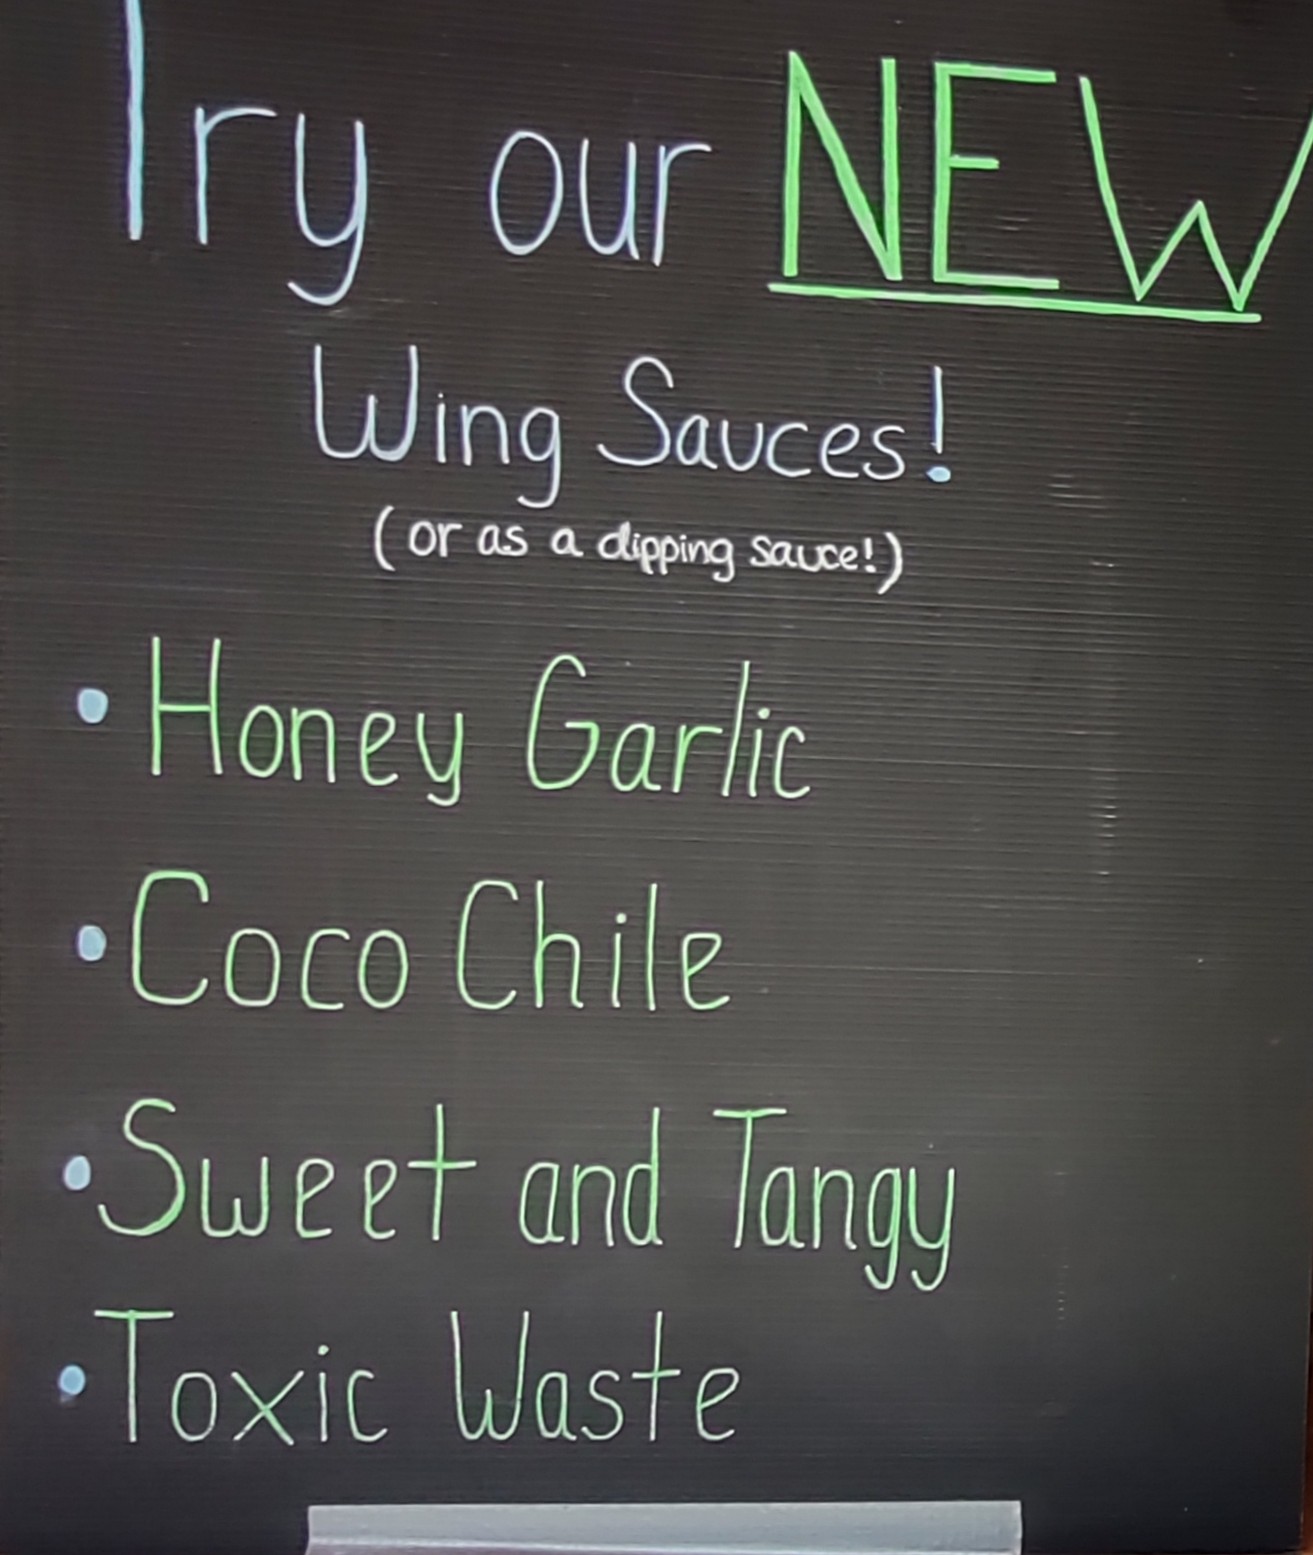 Try our NEW
Wing Sauces!
(or as a dipping sauce!)
• Honey Garlic
• Coco Chile
• Sweet and Tangy
• Toxic Waste